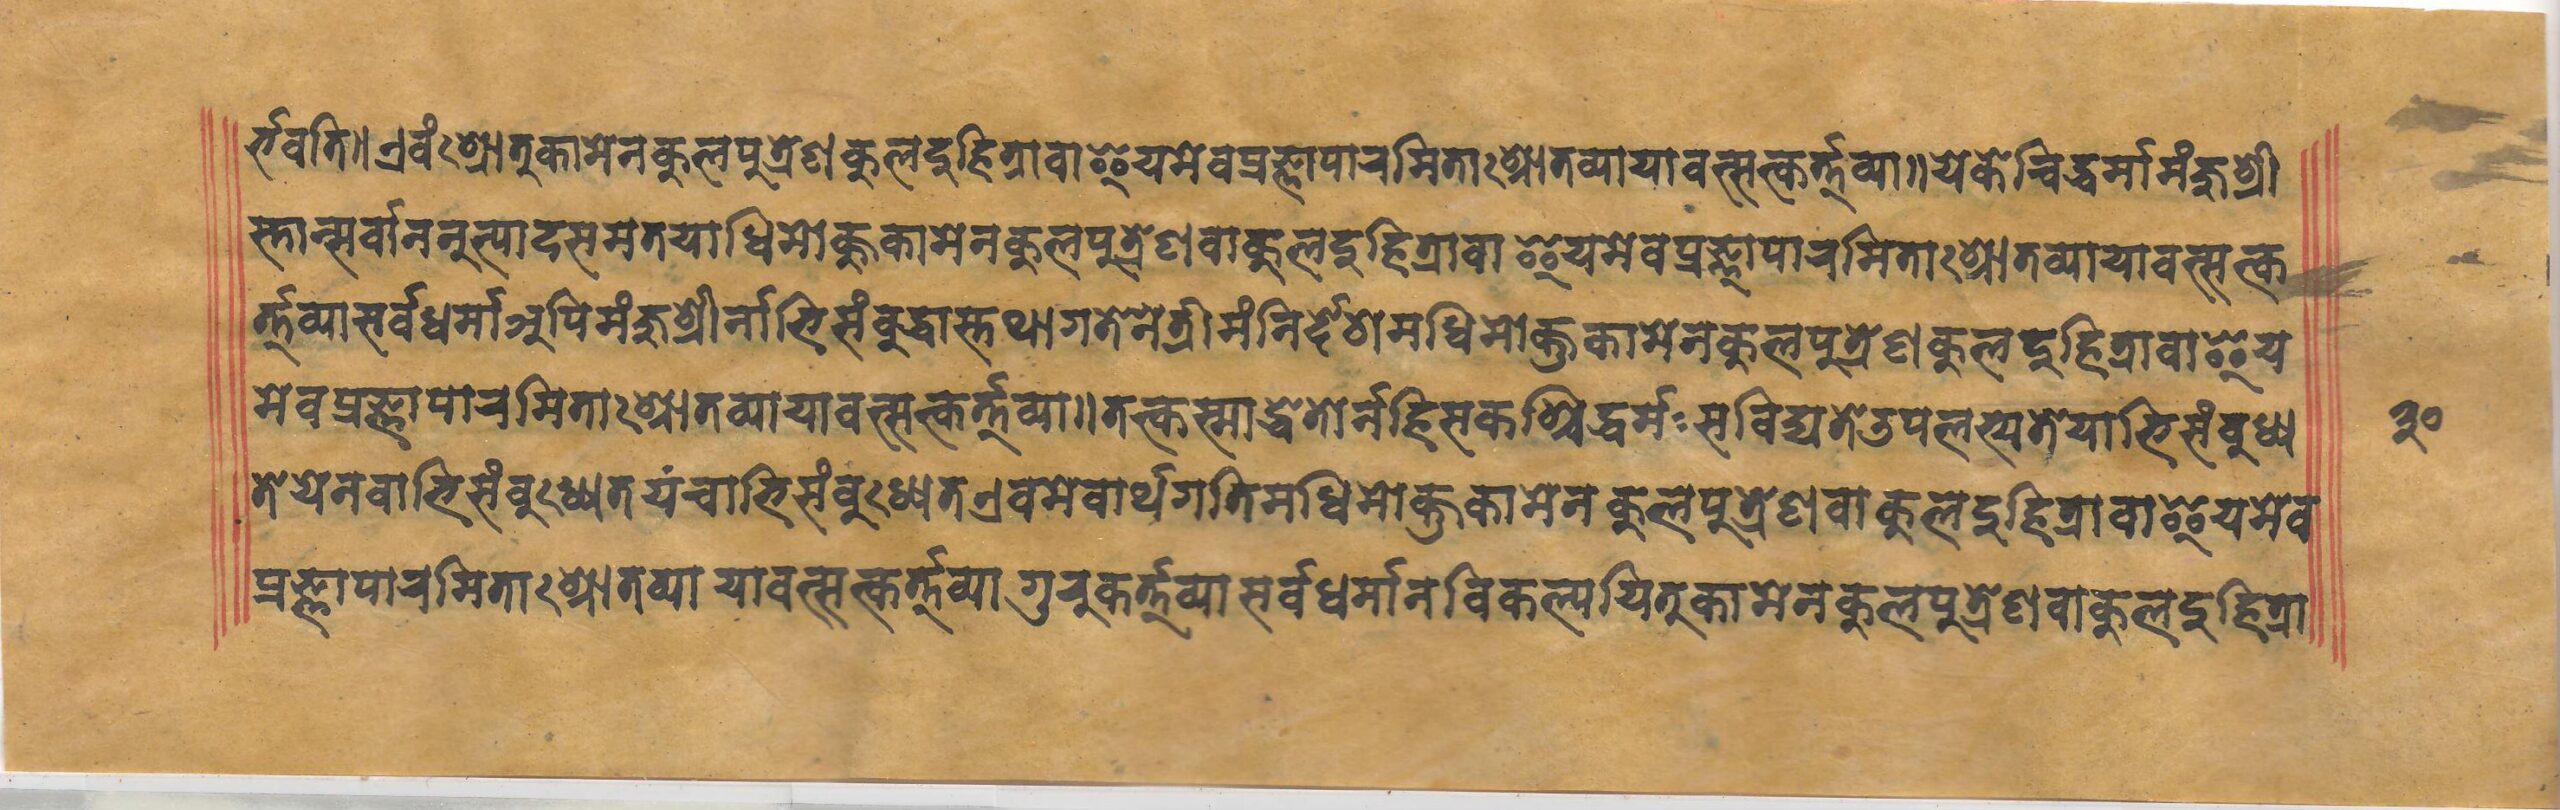 र्भवति॥एवंःश्रोतुकामेनकुलपुत्रेणकुलदुहित्रावाॐयमेवप्रज्ञापारमिताःश्रोतव्यायावत्सत्कर्त्तव्या॥येकेचिद्धर्मामंजुश्री
स्तान्सर्वाननुत्पादसमेतयाधिमोक्तुकामेनकुलपुत्रेणवाकुलदुहित्रावाॐयमेवप्रज्ञापारमिताःश्रोतव्यायावत्सत्क
र्त्तव्यासर्वधर्माअपिमंजुश्रीर्नाभिसंबुद्धास्तथागतेनेत्रीमंनिर्देशमधिमोक्तुकामेनकुलपुत्रेणकुलदुहित्रावाॐय
मेवप्रज्ञापारमिताःश्रोतव्यायावत्सत्कर्त्तव्या॥तत्कस्माद्धेतोर्नहिसकश्चिद्धर्मःसविद्यतेउपलभ्यतेयाभिसंबुध्य
तेयेनवाभिसंबुःध्यतयंचाभिसंबुःध्यतएवमेवार्थगतिमधिमोक्तुकामेनकुलपुत्रेणवाकुलदुहित्रावाॐयमेव
प्रज्ञापारमिताःश्रोतव्या यावत्सत्कर्त्तव्या गुरुकर्त्तव्यासर्वधर्मानविकल्पयितुकामेनकुलपुत्रेणवाकुलदुहित्रा
३०